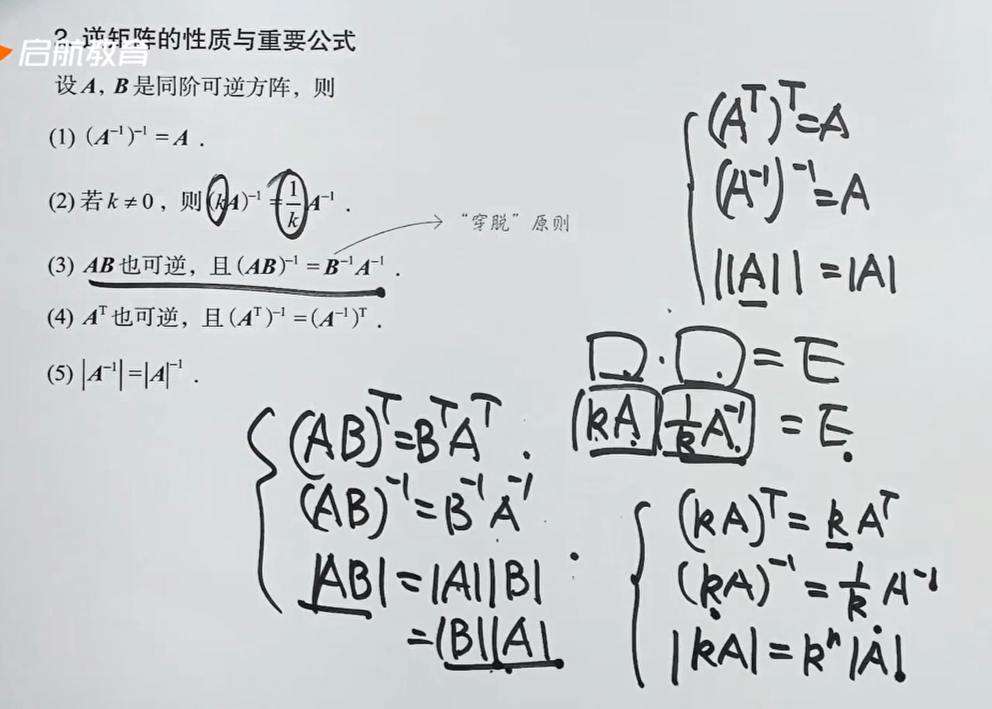 2. 逆矩阵的性质与重要公式
启航教育
设 A, B 是同阶可逆方阵，则
(1) (A⁻¹)⁻¹ = A .
(2) 若 k ≠ 0，则 (kA)⁻¹ = 1/k A⁻¹ .
“穿脱”原则
(3) AB 也可逆，且 (AB)⁻¹ = B⁻¹A⁻¹ .
(4) Aᵀ 也可逆，且 (Aᵀ)⁻¹ = (A⁻¹)ᵀ .
(5) |A⁻¹| = |A|⁻¹ .
(Aᵀ)ᵀ = A
(A⁻¹)⁻¹ = A
||A|| = |A|
□ · □ = E
(kA)(1/k A⁻¹) = E
(AB)ᵀ = BᵀAᵀ
(AB)⁻¹ = B⁻¹A⁻¹
|AB| = |A||B|
= |B||A|
(kA)ᵀ = kAᵀ
(kA)⁻¹ = 1/k A⁻¹
|kA| = kⁿ|A|